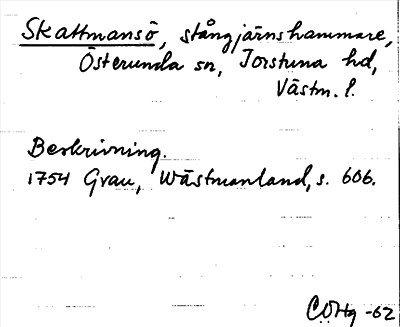 Skattmansö, stångjärnshammare,
Österunda sn, Torstuna hd,
Västm. l.
Beskrivning.
1754 Grau, Wästmanland, s. 606.
COHg -62